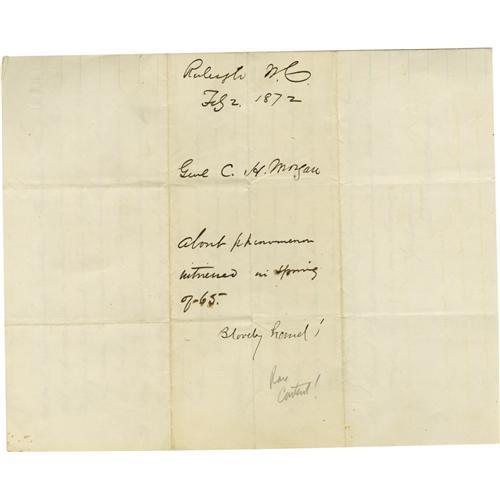 Raleigh N.C.
Feb 2. 1872
Genl C. H. Morgan
About phenomenon
witnessed in Spring
of 65.
Bloody hand!
Rare
Content!